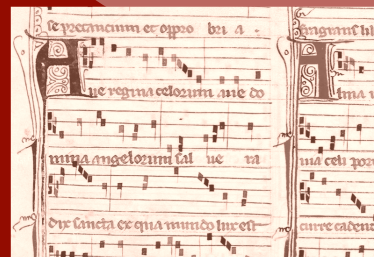 se precancium et oppro bri a.
Aue regina celorum aue do
mina angelorum sal ue ra
dix sancta ex qua mundo lux est
Alma
ma celi por
curre cadent